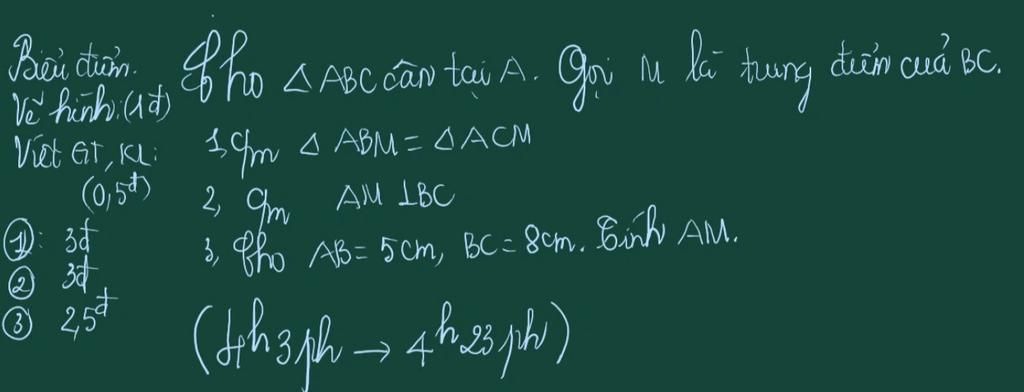 Biểu điểm.
Vẽ hình: (1đ)
Viết GT, KL:
(0,5đ)
①: 3đ
② 3đ
③ 2,5đ
Cho △ ABC cân tại A. Gọi M là trung điểm của BC.
1, Cm △ ABM = △ ACM
2, Cm AM ⊥ BC
3, Cho AB = 5cm, BC = 8cm. Tính AM.
(4h3ph → 4h23ph)